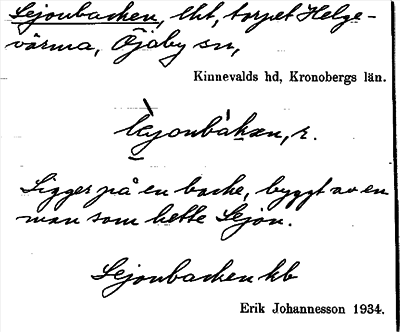 Sejonbacken, lht, torpet Helge-
värma, Öjaby sn,
Kinnevalds hd, Kronobergs län.
r.
Ligger på en backe, byggt av en
man som hette Sejon.
Sejonbacken kb
Erik Johannesson 1934.